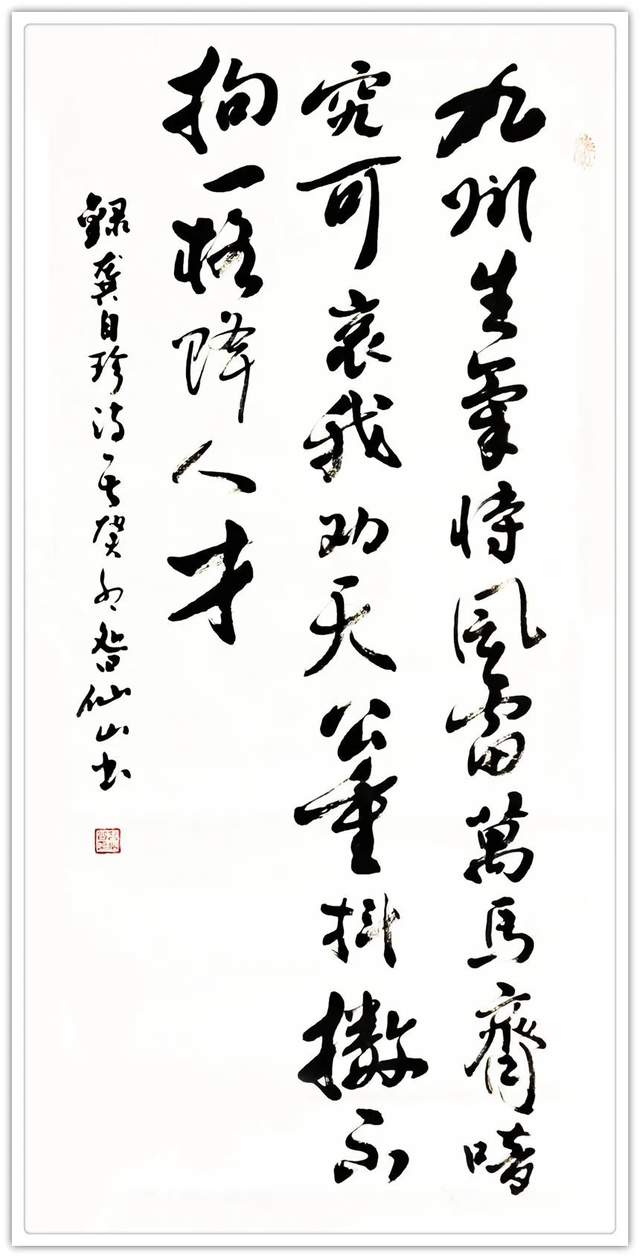 九州生氣恃風雷萬馬齊喑
究可哀我劝天公重抖擞不
拘一格降人才
録龔自珍诗一首癸卯昝仙山书